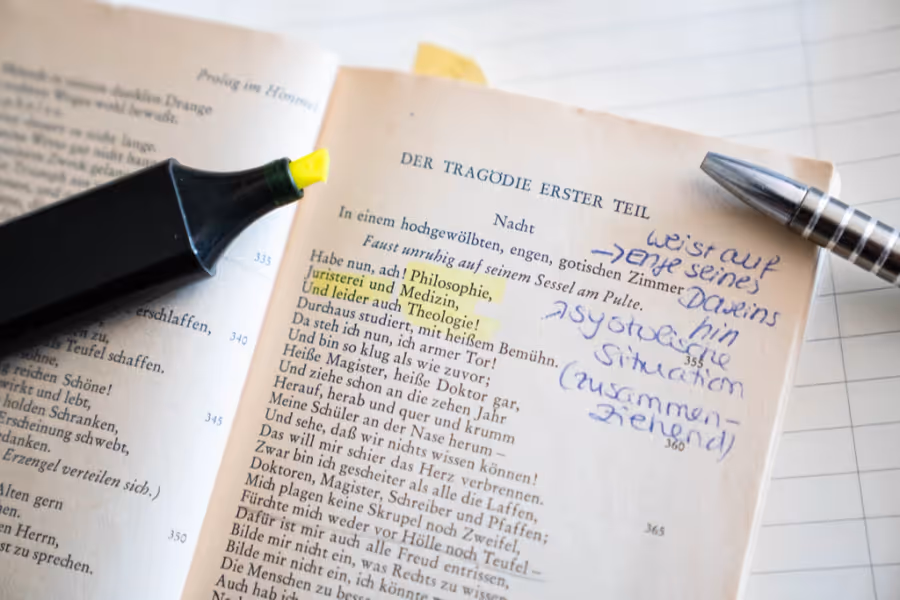 Prolog im Himmel
dunklen Drange
Weges wohl bewußt.
lange.
335
erschlaffen,
zu, 340
Teufel schaffen.
reichen Schöne!
wirkt und lebt,
holden Schranken, 345
Erscheinung schwebt,
Erzengel verteilen sich.)
Alten gern 350
en Herrn,
st zu sprechen.
DER TRAGÖDIE ERSTER TEIL
Nacht
In einem hochgewölbten, engen, gotischen Zimmer
Faust unruhig auf seinem Sessel am Pulte.
Habe nun, ach! Philosophie,
Juristerei und Medizin,
Und leider auch Theologie!
Durchaus studiert, mit heißem Bemühn.
Da steh ich nun, ich armer Tor!
Und bin so klug als wie zuvor;
Heiße Magister, heiße Doktor gar,
Und ziehe schon an die zehen Jahr
Herauf, herab und quer und krumm
Meine Schüler an der Nase herum –
Und sehe, daß wir nichts wissen können!
Das will mir schier das Herz verbrennen.
Zwar bin ich gescheiter als alle die Laffen,
Doktoren, Magister, Schreiber und Pfaffen;
Mich plagen keine Skrupel noch Zweifel,
Fürchte mich weder vor Hölle noch Teufel –
Dafür ist mir auch alle Freud entrissen,
Bilde mir nicht ein, was Rechts zu wissen,
Bilde mir nicht ein, ich könnte
Die Menschen zu
Auch hab ich
355
360
365
weist auf
→ Enge seines
Daseins
hin
→ systolische
Situation
(zusammen-
ziehend)